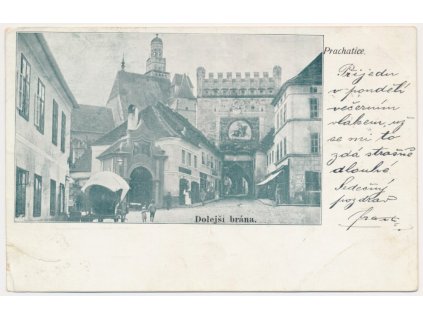 Prachatice.
Přijedu
v pondělí
večerním
vlakem, už
se mi to
zdá strašně
dlouho
Srdečný
pozdrav
Dolejší brána.